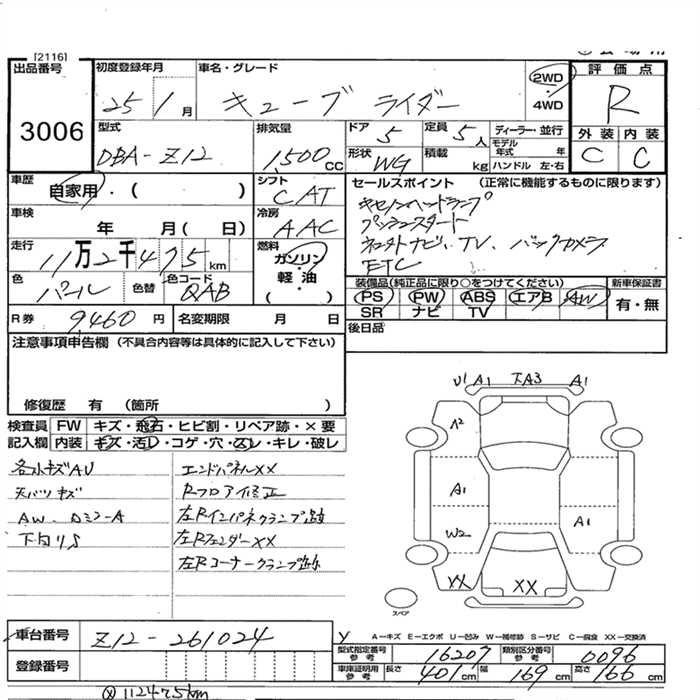 [2116]
出品番号
3006
初度登録年月
25 1月
車名・グレード
キューブ ライダー
2WD
・4WD
評価点
R
外装 内装
C C
型式
DBA-Z12
排気量
1,500 CC
ドア
5
定員
5人
ディーラー・並行
モデル年式 年
ハンドル 左・右
形状
WG
積載
kg
車歴
自家用・( )
シフト
CAT
セールスポイント (正常に機能するものに限ります)
キセノンヘッドランプ
プッシュスタート
ネォトナビ、TV、バックカメラ
ETC
車検
年 月( 日)
冷房
AAC
走行
11万2千475km
燃料
ガソリン
軽・油
( )
色
パール
色替
色コード
QAB
装備品(純正品に限り○をつけてください)
PS PW ABS エアB AW
SR ナビ TV
新車保証書
有・無
R券
9,460円
名変期限 月 日
後日品
注意事項申告欄 (不具合内容等は具体的に記入して下さい)
修復歴 有 (箇所 )
検査員
記入欄
FW キズ・飛石・ヒビ割・リペア跡・×要
内装 キズ・汚レ・コゲ・穴・スレ・キレ・破レ
各小キズAU
天バツキズ
AW、Dミラ-A
下匂りS
エンドパネルXX
Rフロア修正
左Rインパネクランプ跡
左RフェンダーXX
左Rコーナークランプ跡
U1 A1 下A3 A1
A2
A1
A1
W2
XX
XX
スペア
A-キズ E-エクボ U-凹み W-補修跡 S-サビ C-腐食 XX-交換済
車台番号
Z12-261024
登録番号
型式指定番号
参考
16207
類別区分番号
参考
0096
車庫証明用
参考
長さ 401cm
幅 169cm
高さ 166cm
112475km